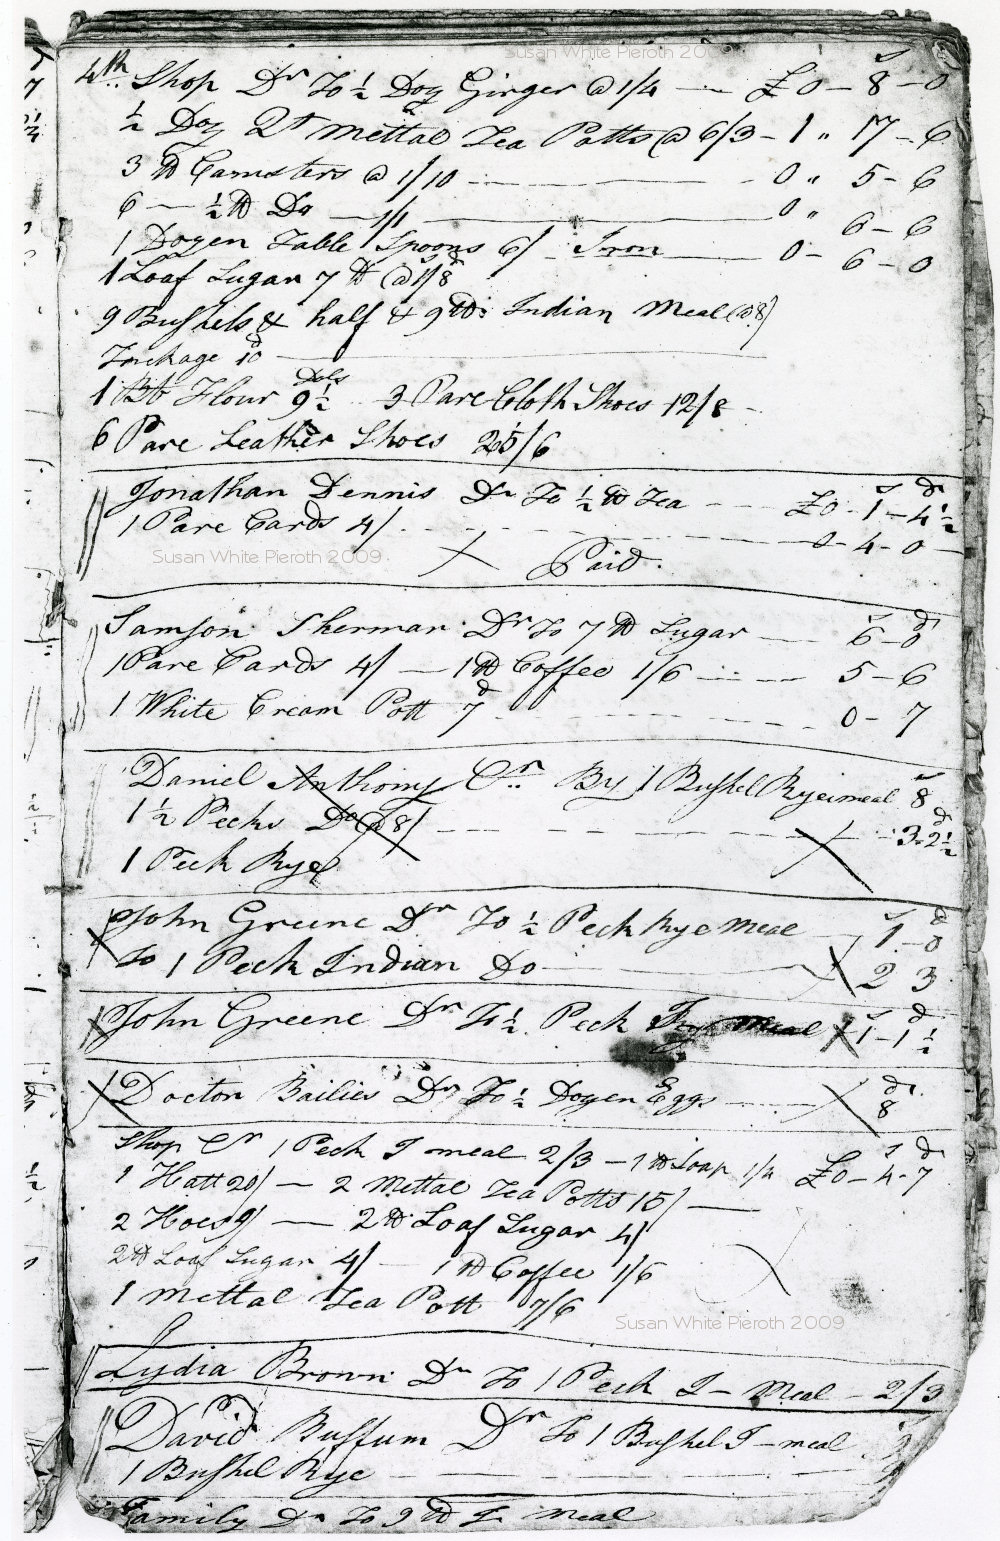 Susan White Pieroth 2009
4th Shop Dr To ½ Doz Ginger @ 1/4 — £0 – 8 – 0
½ Doz Qt Mettal Tea Potts @ 6/3 – 1 " 17 – 6
3 ℔ Cannisters @ 1/10 — 0 " 5 – 6
6 — ½ ℔ Do — 1/1 — 0 " 6 – 6
1 Dozen Table Spoons 6/ – Iron — 0 – 6 – 0
1 Loaf Sugar 7 ℔ @ 1/8
9 Bushels & half & 9 ℔s Indian Meal @ 8/
Truckage 10d
1 Bb Flour 9½ Dols 3 Pare Cloth Shoes 12/8 –
6 Pare Leather Shoes 25/6
Jonathan Dennis Dr To ½ ℔ Tea — £0 – 1 – 4½
1 Pare Cards 4/. — 0 – 4 – 0 —
Susan White Pieroth 2009
Paid.
Samson Sherman Dr To 7 ℔ Sugar — 6 – 0
1 Pare Cards 4/ — 1 ℔ Coffee 1/6 — 5 – 6
1 White Cream Pott 7d — 0 – 7
Daniel Anthony Cr By 1 Bushel Rye meal 8
1½ Pecks Do @ 8/ — 3 – 2½
1 Peck Rye
John Greene Dr To ½ Peck Rye Meal — 1 – 0
To 1 Peck Indian Do — 2 3
John Greene Dr To ½ Peck meal 1 – 1½
Doctor Bailies Dr To ½ Dozen Eggs — 8
Shop Cr 1 Peck I meal 2/3 – 1 ℔ Soap 1/4 £0 – 4 – 7
1 Hatt 20/ — 2 Mettal Tea Potts 15/ —
2 Hoes 9/ — 2 ℔ Loaf Sugar 4/
2 ℔ Loaf Sugar 4/ — 1 ℔ Coffee 1/6
1 Mettal Tea Pott 7/6
Susan White Pieroth 2009
Lydia Brown Dr To 1 Peck I – Meal – 2/3
David Buffum Dr To 1 Bushel I – meal
1 Bushel Rye —
Family Dr To 9 ℔ I meal